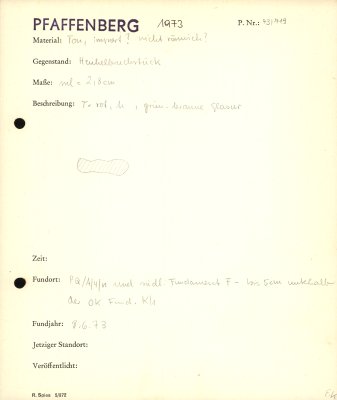 PFAFFENBERG 1973 P. Nr.: 73/419
Material: Ton, import? nicht römisch?
Gegenstand: Henkelbruchstück
Maße: ml = 2,8 cm
Beschreibung: T. rot, h. , grün-braune Glasur
Zeit:
Fundort: und südl. Fundament F - bis 5cm unterhalb
der OK Fund.
Fundjahr: 8.6.73
Jetziger Standort:
Veröffentlicht:
R. Saisa 5/072